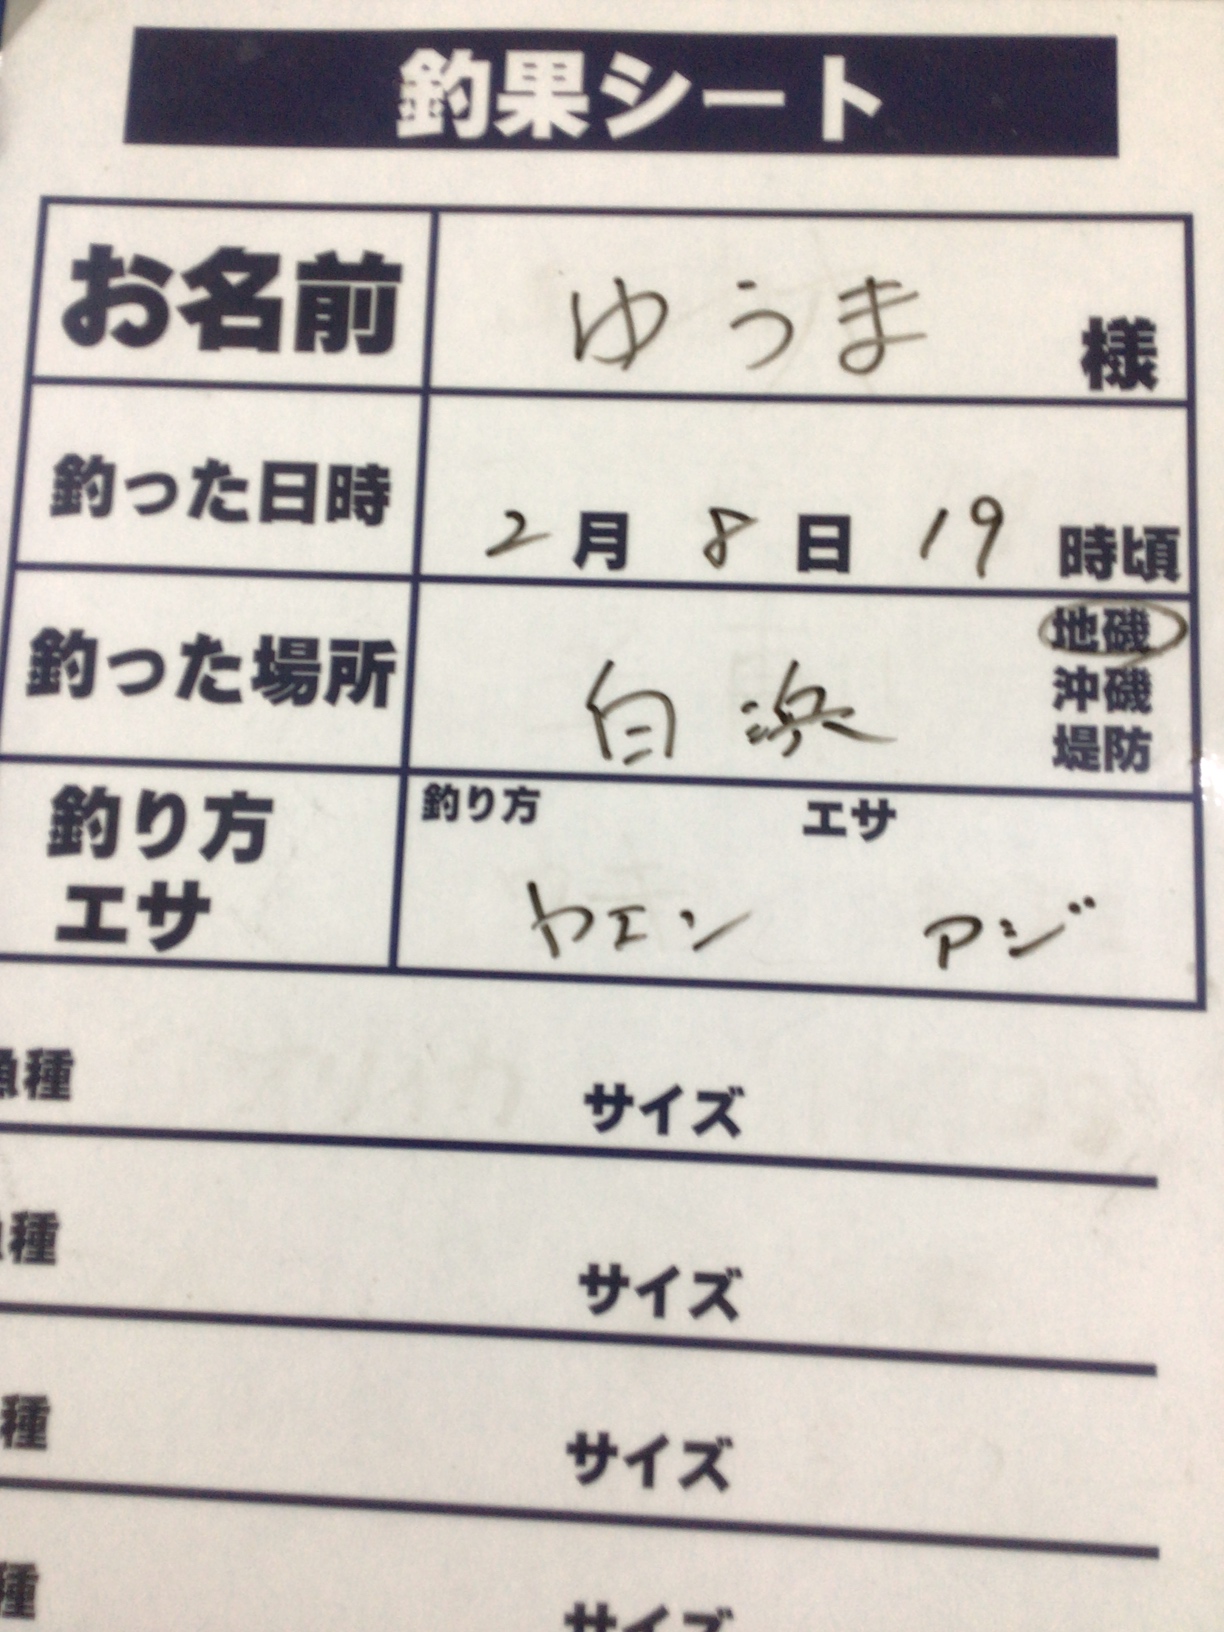 釣果シート
お名前 ゆうま 様
釣った日時 2月8日19時頃
釣った場所 白浜 地磯
沖磯
堤防
釣り方 エサ
釣り方 ヤエン
エサ アジ
魚種 サイズ
魚種 サイズ
種 サイズ
種 サイズ